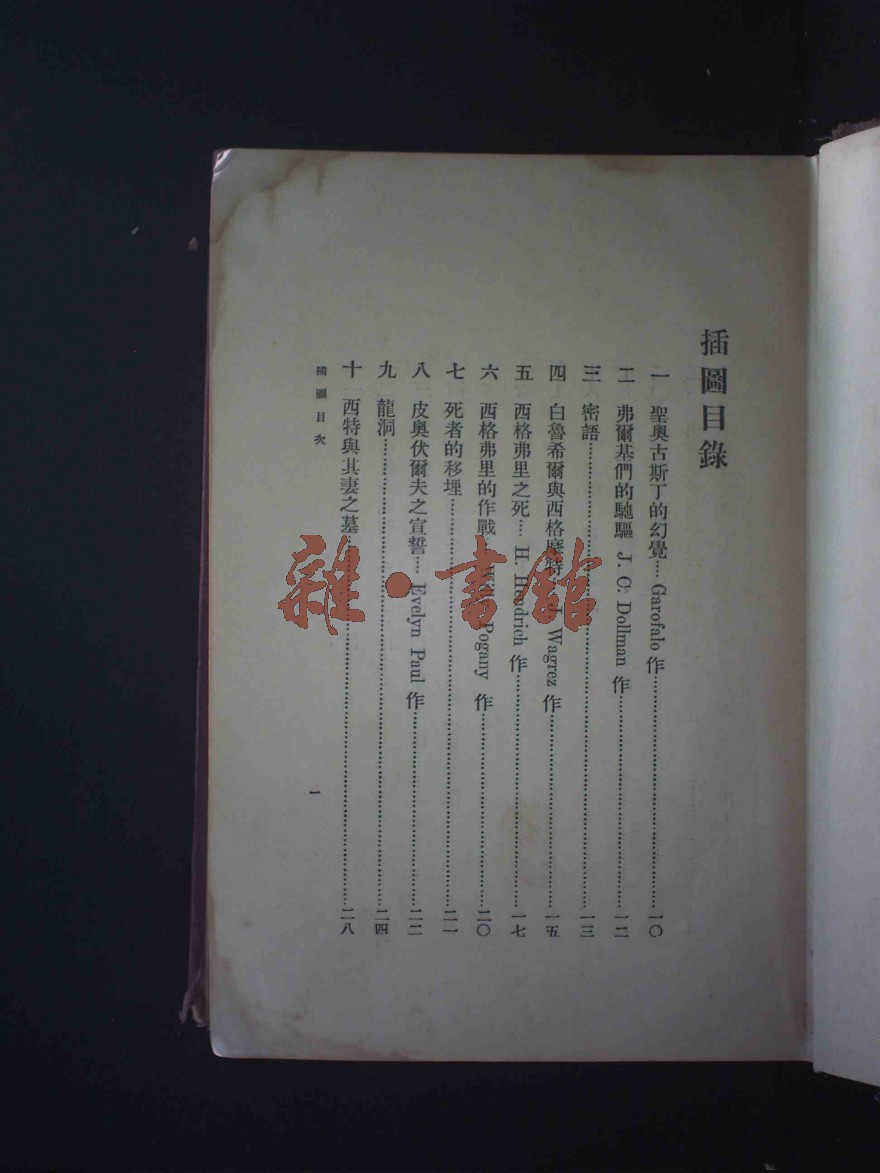 插圖目錄
一 聖奧古斯丁的幻覺…… Garofalo 作……一〇
二 弗爾基們的馳驅 J. C. Dollman 作……一二
三 密語……一三
四 白魯希爾與西格摩特 J. Wagrez 作……一五
五 西格弗里之死…… H. Hendrich 作……一七
六 西格弗里的作戰 Pogany 作……二〇
七 死者的移埋……二一
八 皮奧伏爾夫之宣誓…… Evelyn Paul 作……二二
九 龍洞……二四
十 西特與其妻之墓……二八
插圖目次
一
雜·書館